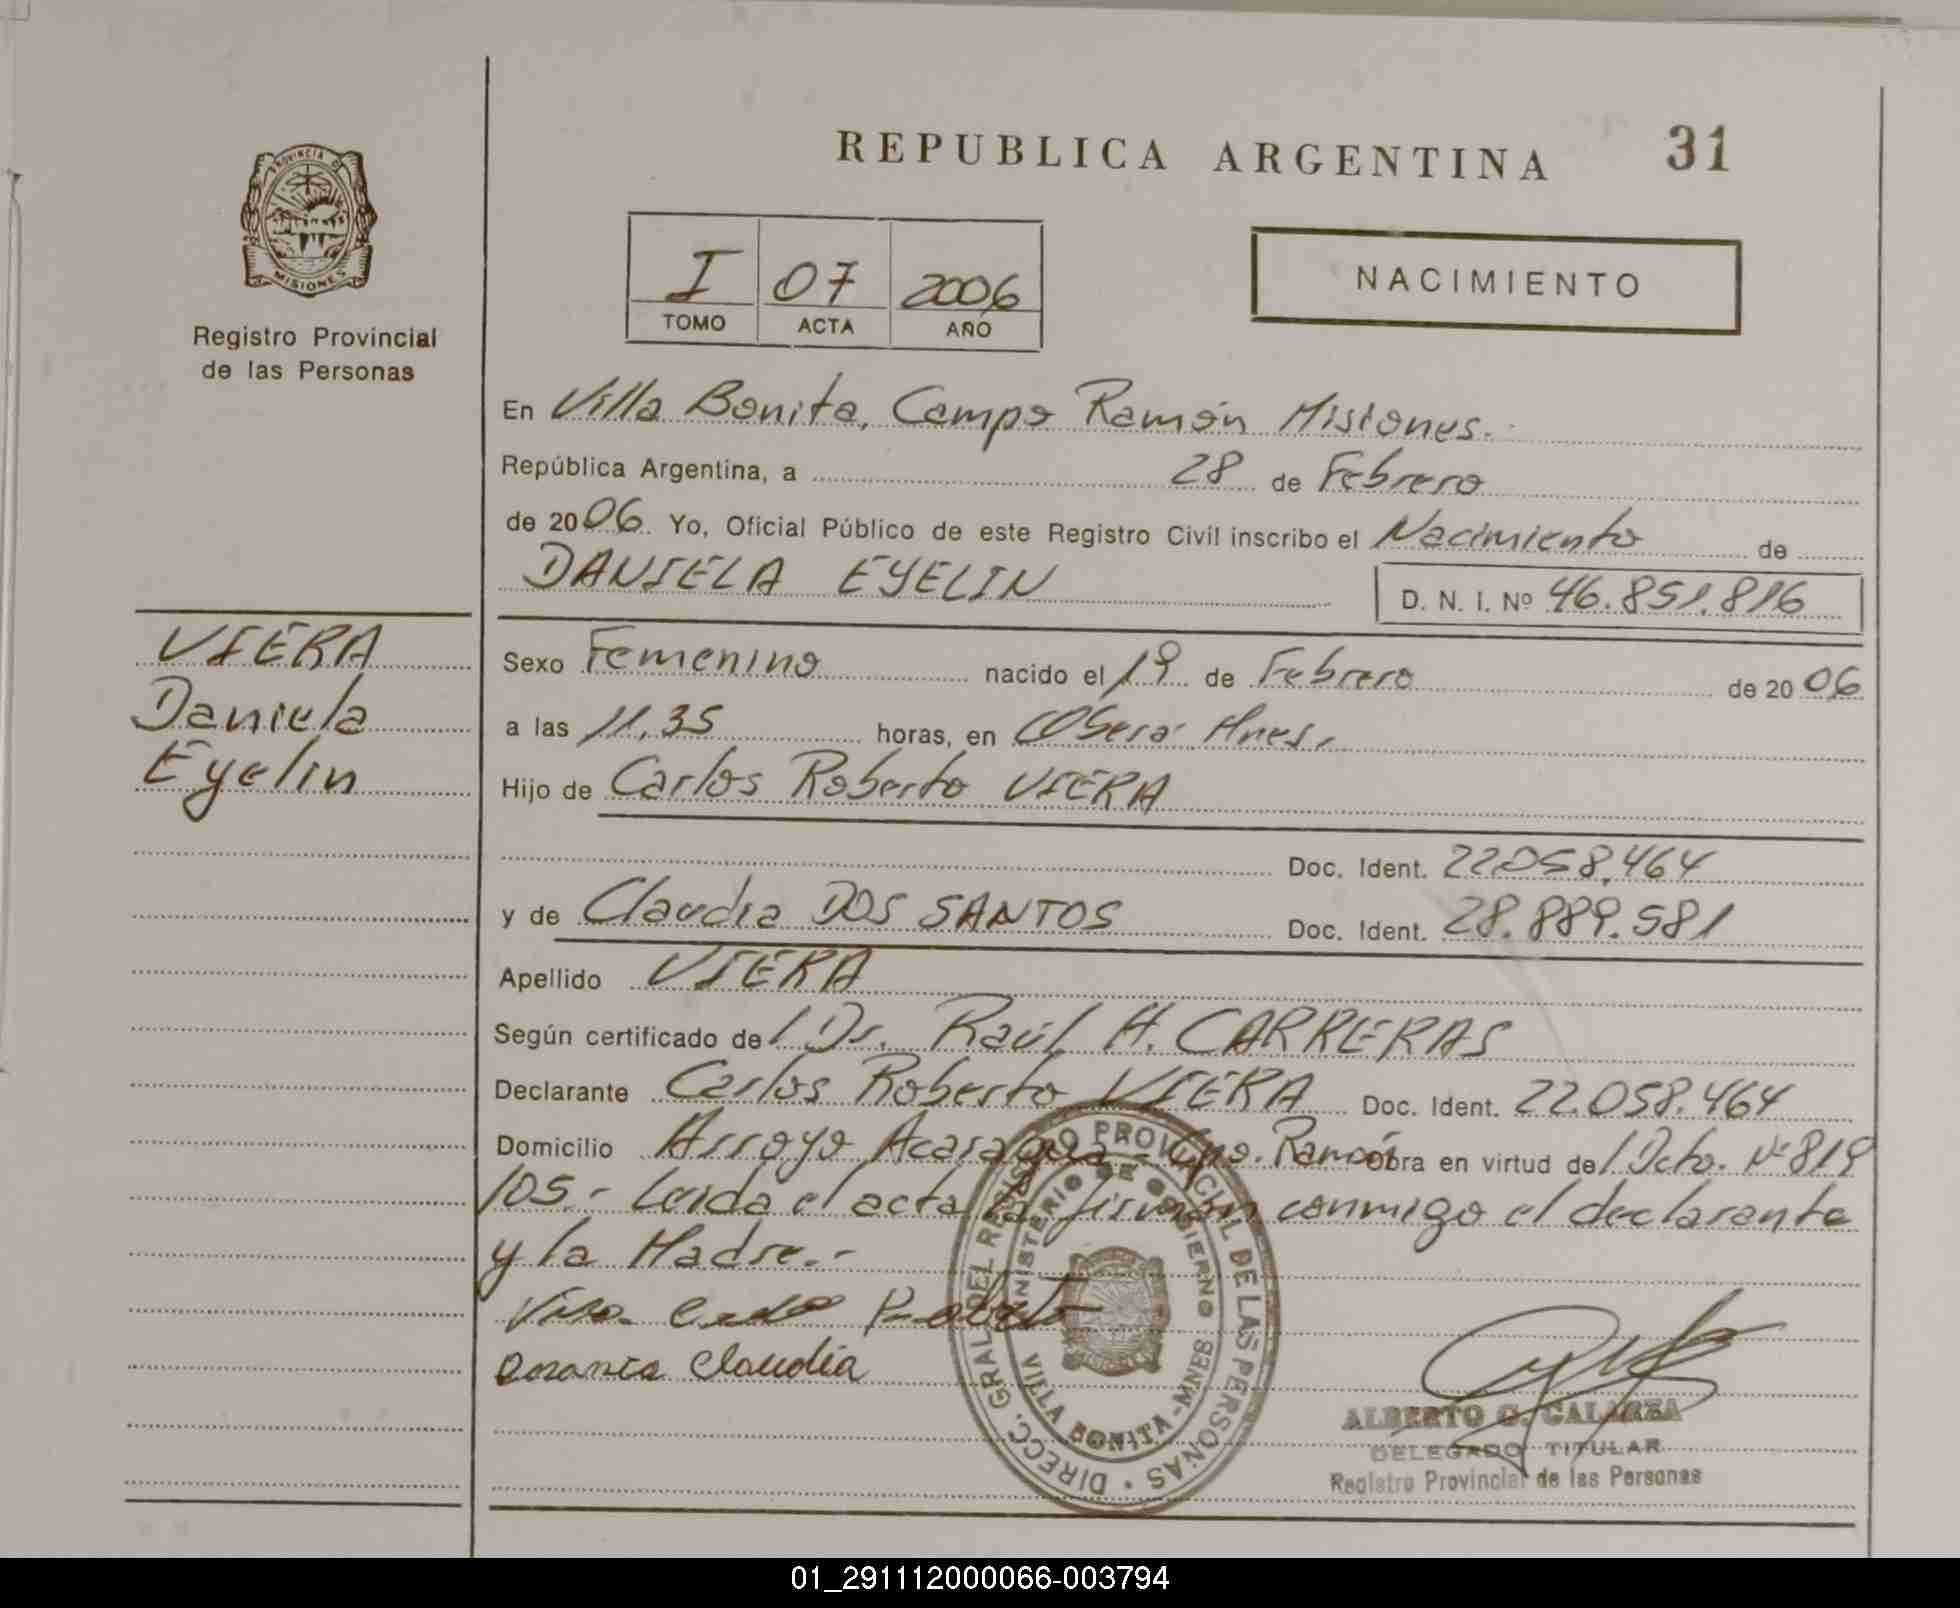 REPUBLICA ARGENTINA 31
PROVINCIA D
MISIONES
Registro Provincial
de las Personas
I 07 2006
TOMO ACTA AÑO
NACIMIENTO
En Villa Bonita, Campo Ramón Misiones.
República Argentina, a 28 de Febrero
de 2006 Yo, Oficial Público de este Registro Civil inscribo el Nacimiento de
DANIELA EYELIN D. N. I. Nº 46.851.816
VIERA
Daniela
Eyelin
Sexo Femenino nacido el 19 de Febrero de 2006
a las 11,35 horas, en Oberá Mnes.
Hijo de Carlos Roberto VIERA
Doc. Ident. 22058.464
y de Claudia DOS SANTOS Doc. Ident. 28.889.581
Apellido VIERA
Según certificado de l Dr. Raúl H. CARRERAS
Declarante Carlos Roberto VIERA Doc. Ident. 22.058.464
Domicilio Arroyo Acaragua - Cpo. Ramón obra en virtud de l Dcto. Nº 819
105.- Leida el acta la firman conmigo el declarante
y la Madre.-
Claudia
DIRECC. GRAL. DEL REGISTRO PROVINCIAL DE LAS PERSONAS
MINISTERIO DE GOBIERNO
VILLA BONITA - MNES
ALBERTO C. GALARZA
DELEGADO TITULAR
Registro Provincial de las Personas
01_291112000066-003794